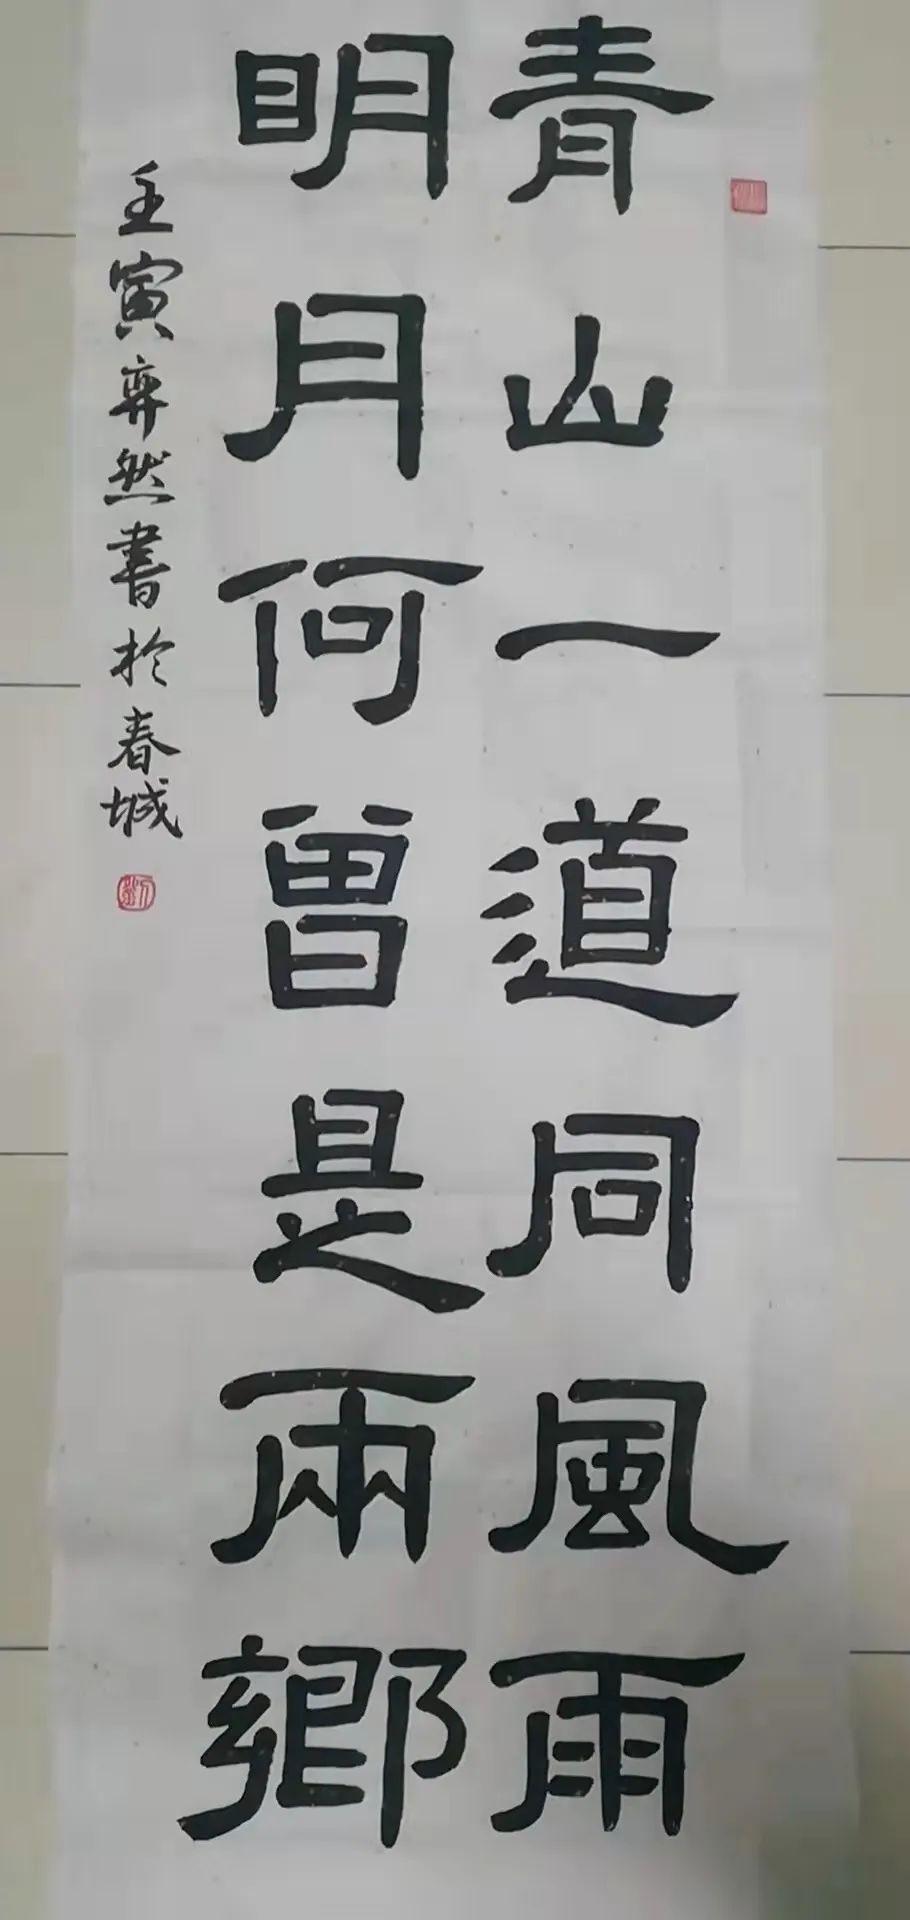 青山一道同風雨
明月何曾是兩鄉
壬寅弈然書於春城
劉